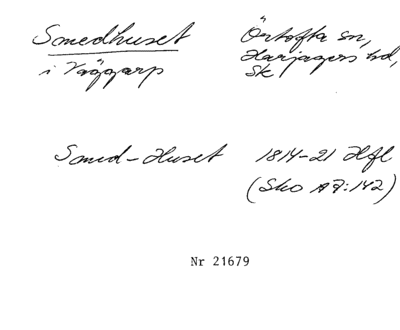 Smedhuset
i Väggarp
Örtofta sn,
Harjagers hd,
Sk
Smed-Huset 1814-21 Hfl
(Sko A7:142)
Nr 21679